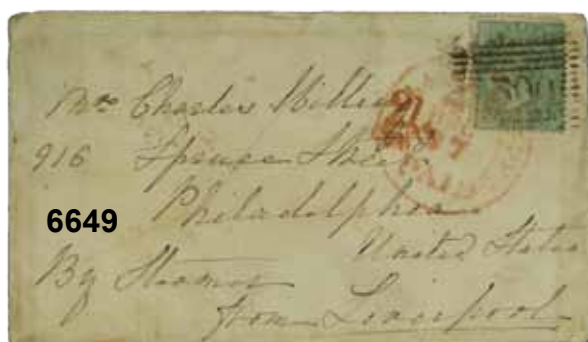 Mrs Charles Willing
916 Spruce Street
Philadelphia
6649
United States
By Steamer
from Liverpool